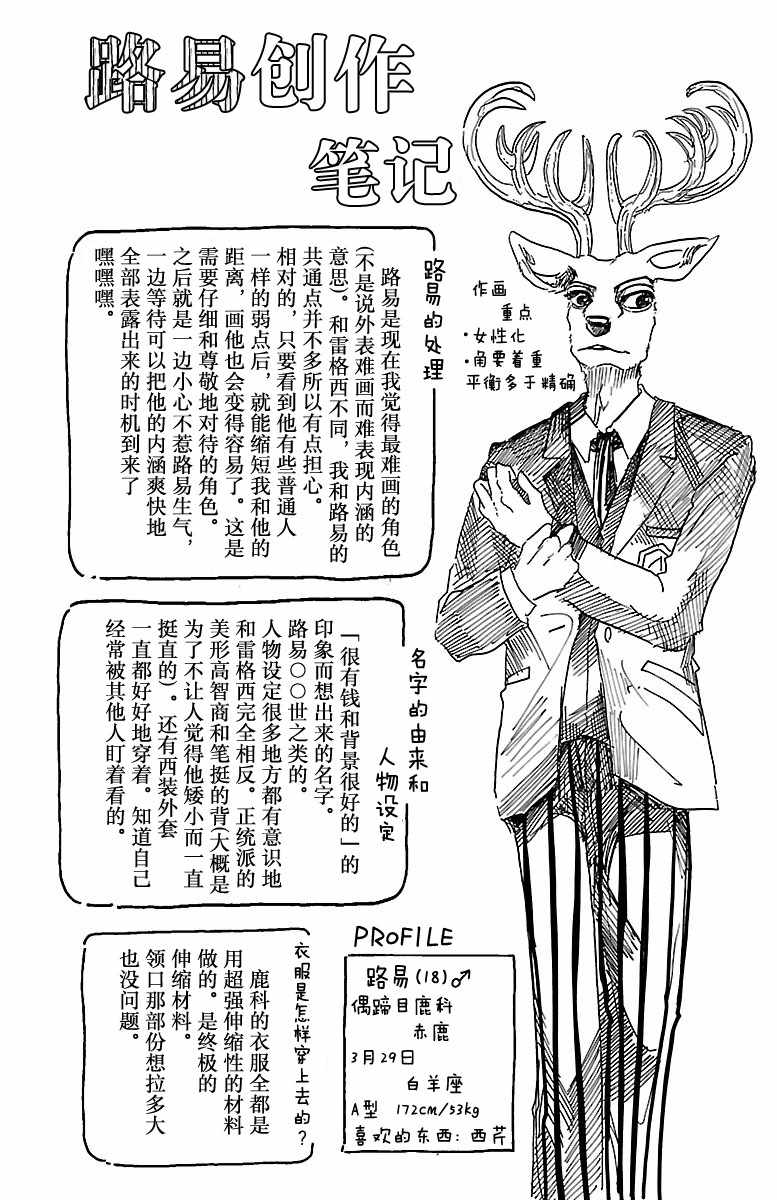 路易创作
笔记
作画
重点
・女性化
・角要着重
平衡多于精确
路易的处理
路易是现在我觉得最难画的角色
(不是说外表难画而难表现内涵的
意思)。和雷格西不同，我和路易的
共通点并不多所以有点担心。
相对的，只要看到他有些普通人
一样的弱点后，就能缩短我和他的
距离，画他也会变得容易了。这是
需要仔细和尊敬地对待的角色。
之后就是一边小心不惹路易生气，
一边等待可以把他的内涵爽快地
全部表露出来的时机到来了
嘿嘿嘿。
名字的由来和
人物设定
「很有钱和背景很好的」的
印象而想出来的名字。
路易○○世之类的。
人物设定很多地方都有意识地
和雷格西完全相反。正统派的
美形高智商和笔挺的背(大概是
为了不让人觉得他矮小而一直
挺直的)。还有西装外套
一直都好好地穿着。知道自己
经常被其他人盯着看的。
衣服是怎样穿上去的？
鹿科的衣服全都是
用超强伸缩性的材料
做的。是终极的
伸缩材料。
领口那部份想拉多大
也没问题。
PROFILE
路易(18)♂
偶蹄目鹿科
赤鹿
3月29日
白羊座
A型 172cm/53kg
喜欢的东西:西芹